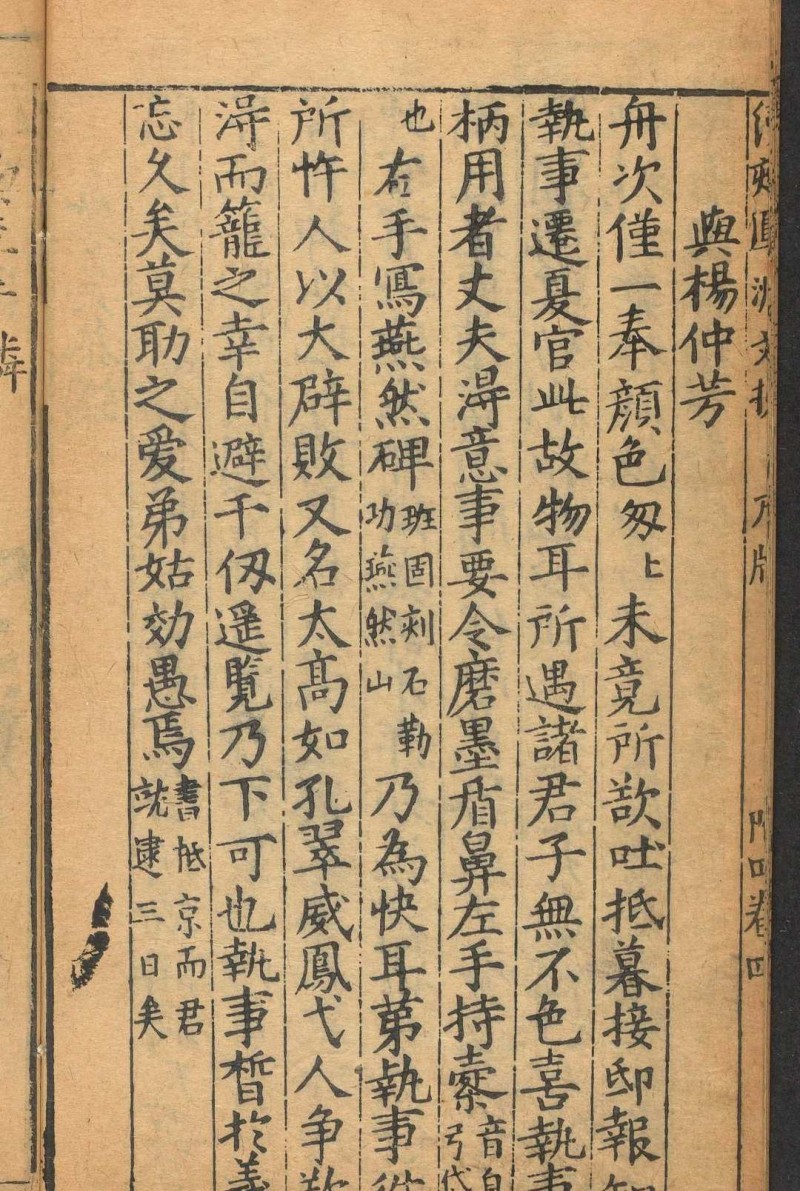 與楊仲芳
舟次僅一奉顏色匆〻未竟所欲吐抵暮接邸報
執事遷夏官此故物耳所遇諸君子無不色喜執事
柄用者丈夫淂意事要令磨墨盾鼻左手持櫜音
弓
也右手寫燕然碑班固刻石勒功燕然山乃為快耳第執事
所忤人以大辟敗又名太高如孔翠威鳳弋人争欲
淂而籠之幸自避千仭遥覧乃下可也執事晳於義
忘久矣莫助之爱弟姑効愚焉書抵京而君就逮三日矣